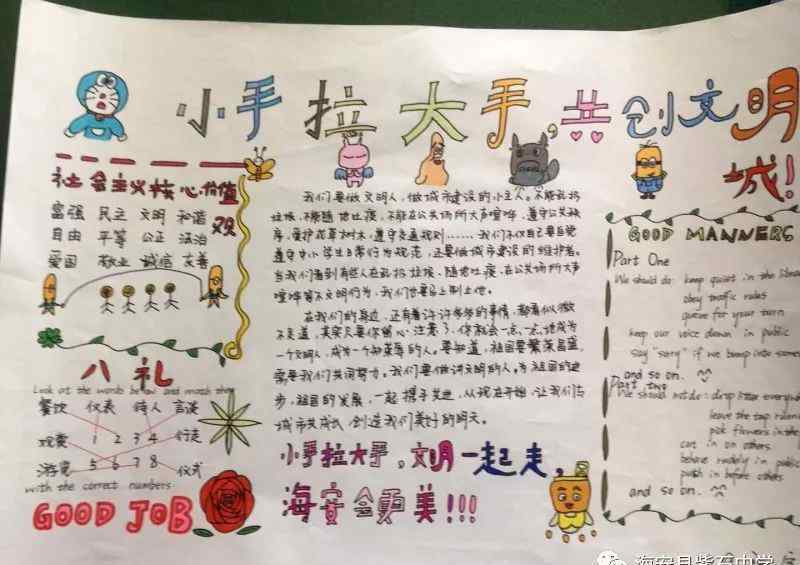 小手拉大手,共创文明
城!
社会主义核心价值
观
富强 民主 文明 和谐
自由 平等 公正 法治
爱国 敬业 诚信 友善
八礼
Look at the words below and match they
餐饮 仪表 待人 言谈
观赏 1 2 3 4 行走
游览 5 6 7 8 仪式
with the correct numbers
GOOD JOB
我们要做文明人,做城市建设的小主人。不能乱扔
垃圾,不能随地吐痰,不能在公共场所大声喧哗,遵守公共秩
序,爱护花草树木,遵守交通规则……,我们不仅自己要自觉
遵守中小学生日常行为规范,还要做城市建设的维护者。
当我们看到有些人在乱扔垃圾,随地吐痰,在公共场所大声
喧哗等不文明行为,我们也要马上制止他。
在我们的身边,还有着许许多多的事情,都看似微
不足道,其实只要你留心,注意了,你就会一点一点地成为
一个文明人,成为一个知荣辱的人。要知道,祖国要繁荣昌盛,
需要我们共同努力。我们要做讲文明的人。为祖国的进
步,祖国的发展,一起携手共进,从现在开始,让我们与
城市共成长,创造我们美好的明天。
小手拉大手,文明一起走,
海安会更美!!!
GOOD MANNERS
Part One
We should do: keep quiet in the libra
obey traffic rules
queue for your turn
keep our voice down in public
say "sorry" if we bump into some
and so on.
Part two
We should not do: drop litter everywh
leave the tap runni
pick flowers in the
cut in on others
behave rudely in public
push in before others
and so on.
海安县紫石中学